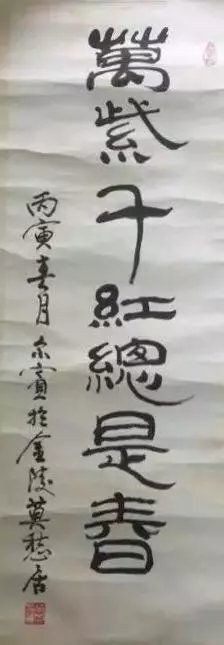 萬紫千紅總是春
丙寅春月亦賓於金陵莫愁居